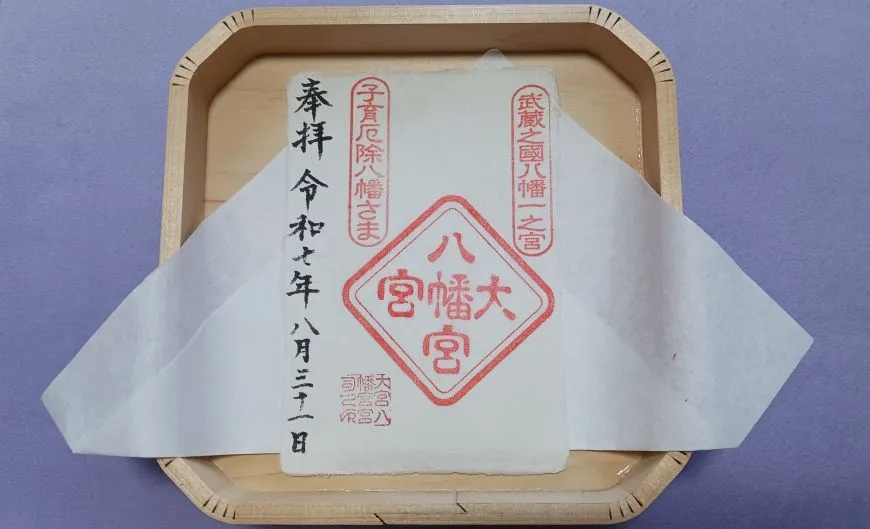 武蔵之國八幡一之宮
大宮
八幡宮
子育厄除八幡さま
大宮八
幡宮宮
司之印
奉拝 令和七年 八月三十一日